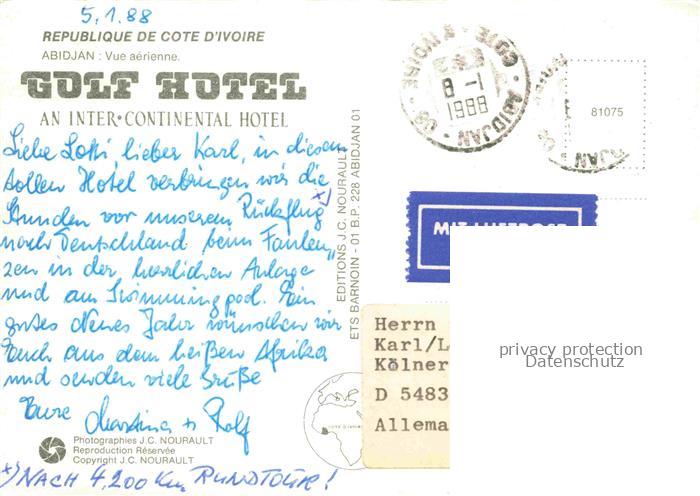 5.1.88
REPUBLIQUE DE COTE D'IVOIRE
ABIDJAN : Vue aérienne.
GOLF HOTEL
AN INTER•CONTINENTAL HOTEL
Liebe Lotti, lieber Karl, in diesem
tollen Hotel verbringen wir die
Stunden vor unserem Rückflug *)
nach Deutschland beim Faulen-
zen in der herrlichen Anlage
und am Swimmingpool. Ein
gutes Neues Jahr wünschen wir
Euch aus dem heißen Afrika
und senden viele Grüße
Eure Martina + Rolf
Photographies J.C. NOURAULT
Reproduction Réservée
Copyright J.C. NOURAULT
*) NACH 4.200 Km RUNDTOUR!
EDITIONS J.C. NOURAULT
ETS BARNOIN - 01 B.P. 228 ABIDJAN 01
COTE D'IVOIRE
ABIDJAN 08
8-1
1988
81075
MIT LUFTPOST
Herrn
Karl/L
Kölner
D 5483
Allema
privacy protection
Datenschutz